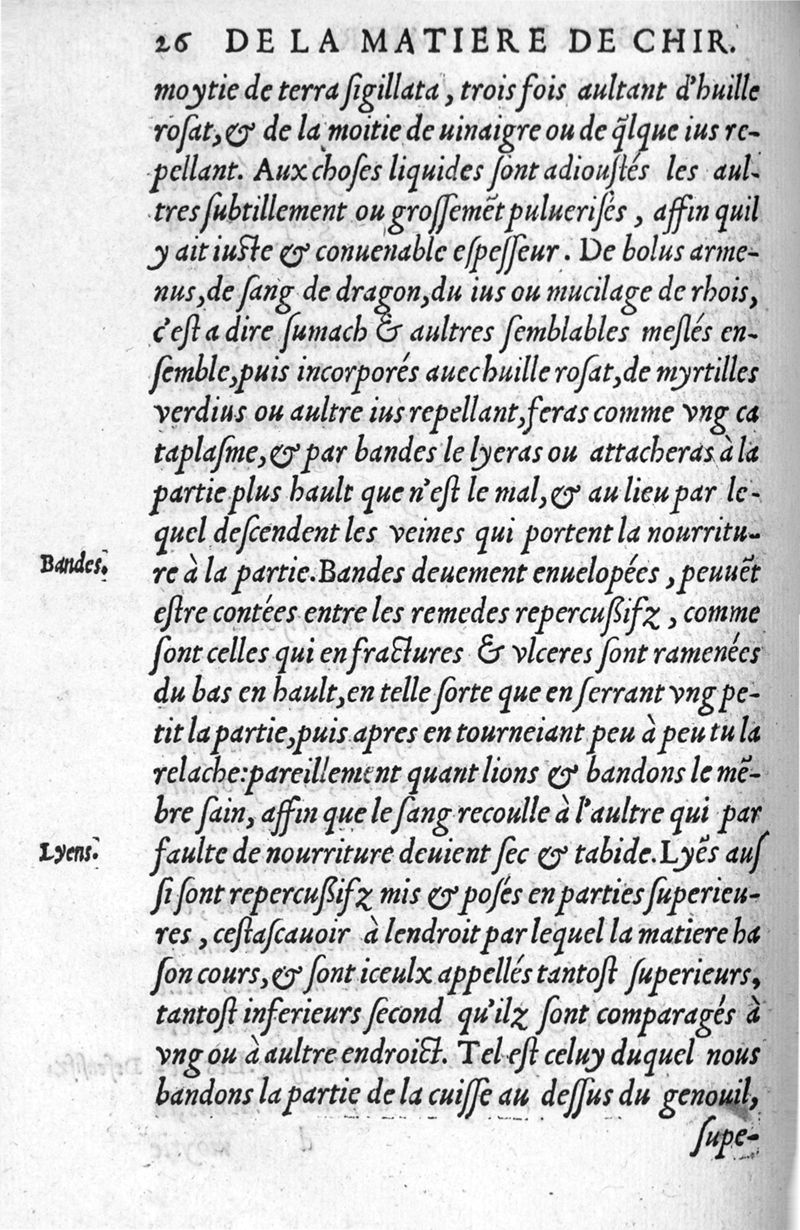 26 DE LA MATIERE DE CHIR.
moytie de terra ſigillata, trois fois aultant d'huille
roſat, & de la moitie de uinaigre ou de q̃lque ius re-
pellant. Aux choſes liquides ſont adiouſtés les aul-
tres ſubtillement ou groſſemẽt pulueriſés, affin quil
y ait iuste & conuenable eſpeſſeur. De bolus arme-
nus, de ſang de dragon, du ius ou mucilage de rhois,
c'eſt a dire ſumach & aultres ſemblables meſlés en-
ſemble, puis incorporés auec huille roſat, de myrtilles
verdius ou aultre ius repellant, feras comme vng ca
taplaſme, & par bandes le lyeras ou attacheras à la
partie plus hault que n'eſt le mal, & au lieu par le-
quel deſcendent les veines qui portent la nourritu-
Bandes.
re à la partie. Bandes deuement enuelopées, peuuẽt
eſtre contées entre les remedes repercußifz, comme
ſont celles qui en fractures & vlceres ſont ramenées
du bas en hault, en telle ſorte que en ſerrant vng pe-
tit la partie, puis apres en tourneiant peu à peu tu la
relache: pareillement quant lions & bandons le mẽ-
bre ſain, affin que le ſang recoulle à l'aultre qui par
Lyens.
faulte de nourriture deuient ſec & tabide. Lyẽs auſ
ſi ſont repercußifz mis & poſés en parties ſuperieu-
res, ceſtaſcauoir à lendroit par lequel la matiere ha
ſon cours, & ſont iceulx appellés tantoſt ſuperieurs,
tantoſt inferieurs ſecond qu'ilz ſont comparagés à
vng ou à aultre endroict. Tel eſt celuy duquel nous
bandons la partie de la cuiſſe au deſſus du genouil,
ſupe-